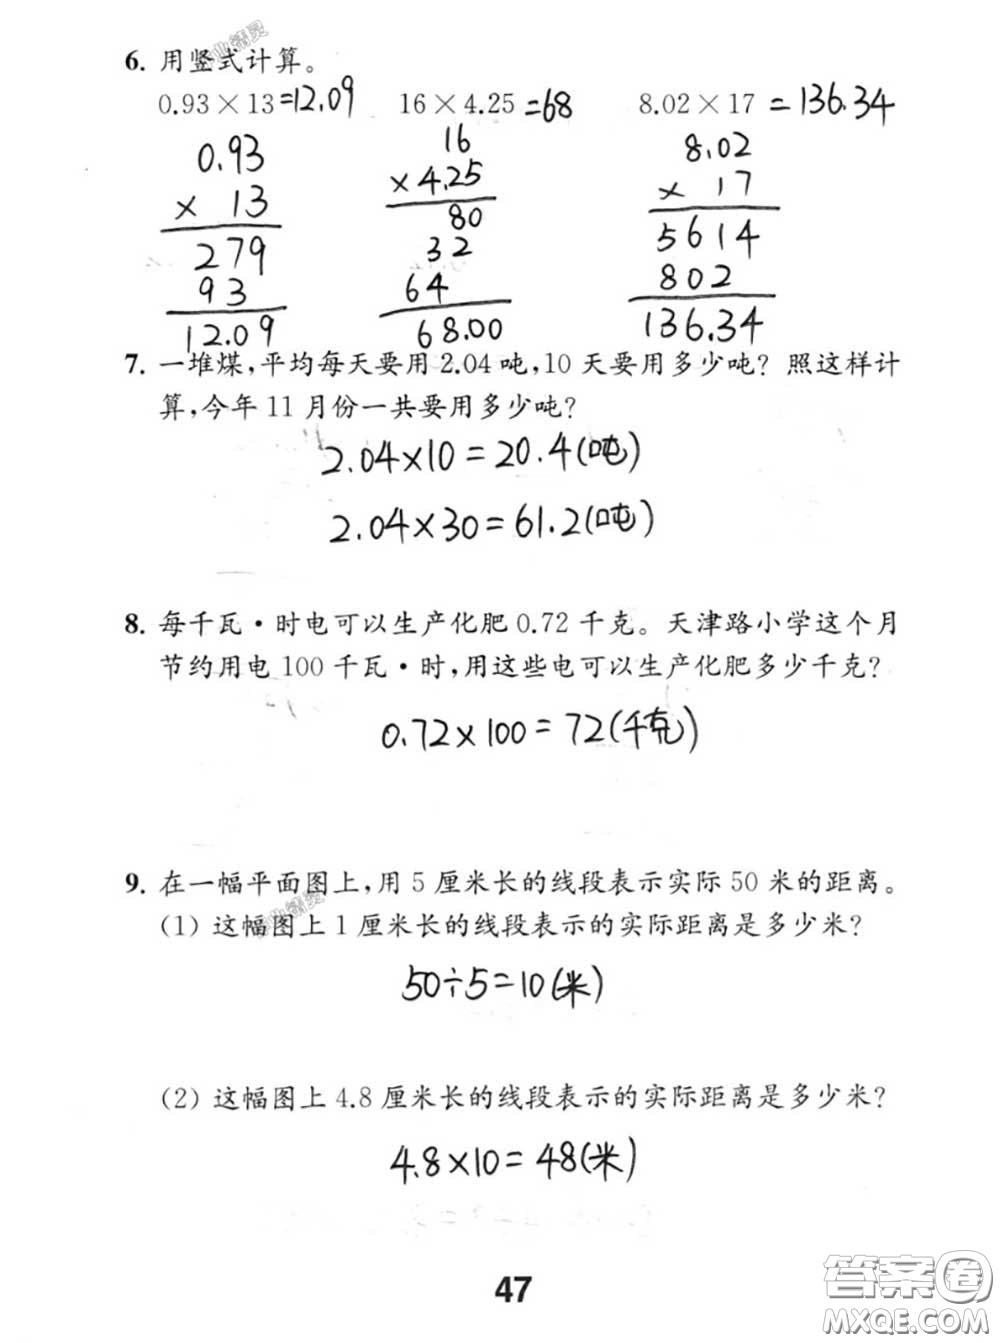 6. 用竖式计算。
0.93×13=12.09 16×4.25=68 8.02×17=136.34
0.93
× 13
279
93
12.09
16
×4.25
80
32
64
68.00
8.02
× 17
5614
802
136.34
7. 一堆煤,平均每天要用2.04吨,10天要用多少吨? 照这样计
算,今年11月份一共要用多少吨?
2.04×10=20.4(吨)
2.04×30=61.2(吨)
8. 每千瓦·时电可以生产化肥0.72千克。天津路小学这个月
节约用电100千瓦·时,用这些电可以生产化肥多少千克?
0.72×100=72(千克)
9. 在一幅平面图上,用5厘米长的线段表示实际50米的距离。
(1) 这幅图上1厘米长的线段表示的实际距离是多少米?
50÷5=10(米)
(2) 这幅图上4.8厘米长的线段表示的实际距离是多少米?
4.8×10=48(米)
47
答案圈
MXQE.COM